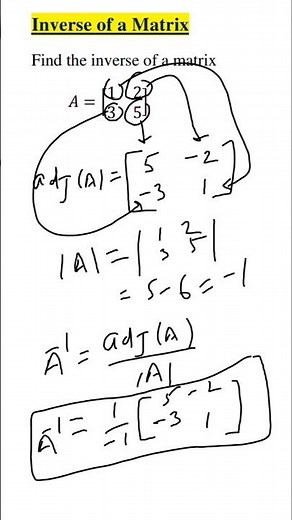 Inverse of a Matrix
Find the inverse of a matrix
A = [1 2
3 5]
adj(A) = [5 -2
-3 1]
|A| = |1 2
3 5|
= 5 - 6 = -1
A⁻¹ = adj(A)
|A|
A⁻¹ = 1/-1 [5 -2
-3 1]